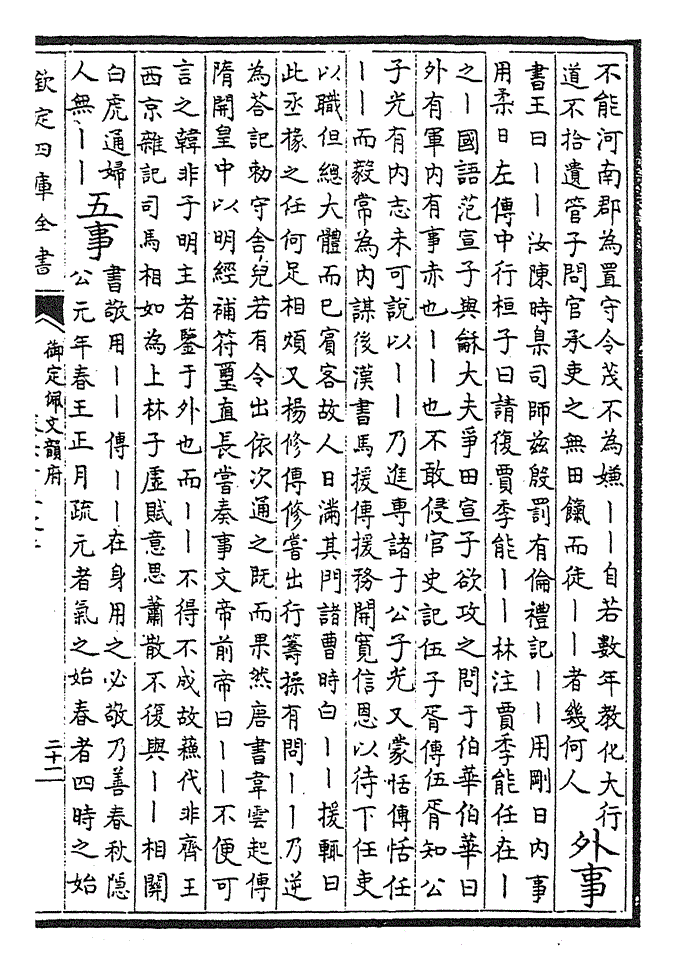 不能河南郡為置守令茂不為嫌丨丨自若數年教化大行
道不拾遺管子問官承吏之無田餼而徒丨丨者幾何人
外事
書王曰丨丨汝陳時臬司師茲殷罰有倫禮記丨丨用剛日內事
用柔日左傳中行桓子曰請復賈季能丨丨林注賈季能任在丨
之丨國語范宣子與龢大夫爭田宣子欲攻之問于伯華伯華曰
外有軍內有事赤也丨丨也不敢侵官史記伍子胥傳伍胥知公
子光有內志未可說以丨丨乃進專諸于公子光又蒙恬傳恬任
丨丨而毅常為內謀後漢書馬援傳援務開寬信恩以待下任吏
以職但總大體而已賓客故人日滿其門諸曹時白丨丨援輒曰
此丞掾之任何足相煩又楊修傳修嘗出行籌操有問丨丨乃逆
為荅記勅守舍兒若有令出依次通之既而果然唐書韋雲起傳
隋開皇中以明經補符璽直長嘗奏事文帝前帝曰丨丨不便可
言之韓非子明主者鑒于外也而丨丨不得不成故蘓代非齊王
西京雜記司馬相如為上林子虛賦意思蕭散不復與丨丨相關
白虎通婦
人無丨丨
五事
書敬用丨丨傳丨丨在身用之必敬乃善春秋隱
公元年春王正月疏元者氣之始春者四時之始
欽定四庫全書
御定佩文韻府
二十二